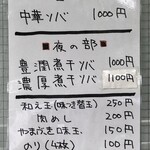 中華ソバ 1000円
■夜の部■
豊潤煮干ソバ 1000円
濃厚煮干ソバ 1100円
和え玉(味つき替玉) 250円
肉めし 200円
やまぶき味玉 150円
のり(4枚) 100円